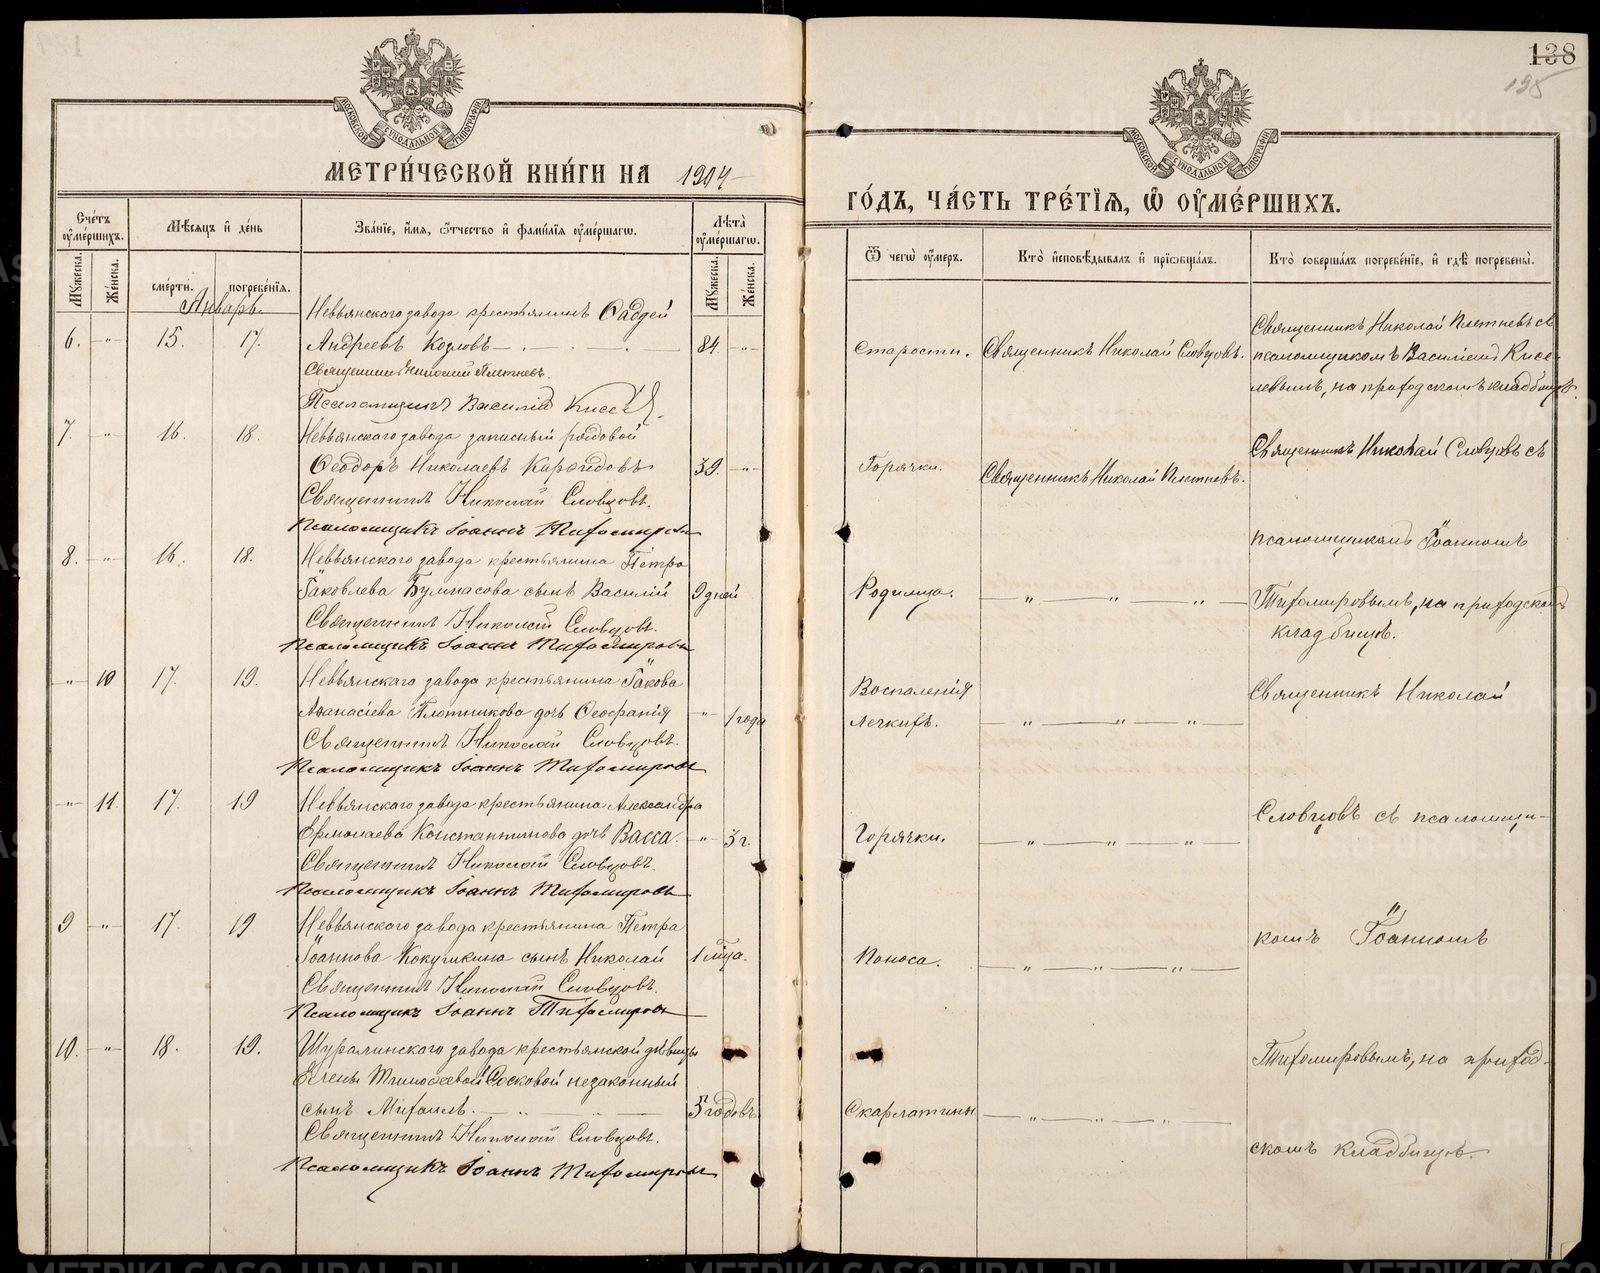 138
195
МОСКОВСКОЙ СѴНОДАЛЬНОЙ ТИПОГРАФІИ
МОСКОВСКОЙ СѴНОДАЛЬНОЙ ТИПОГРАФІИ
МЕТРИ́ЧЕСКОЙ КНИ́ГИ НА 1904
ГО́ДЪ, ЧА́СТЬ ТРЕ́ТІѦ, Ѿ ОУ҆МЕ́РШИХЪ.
Сче́тъ оу҆ме́ршихъ.
Мѣ́сяцъ и҆ де́нь
Зва́ніе, и҆́мѧ, ѻ҆́тчество и҆ фами́лїѧ оу҆ме́ршагѡ.
Лѣ́та оу҆ме́ршагѡ.
Ѿ чегѡ̀ оу҆́меръ.
Кто̀ и҆сповѣ́дывалъ и҆ прїѡбща́лъ.
Кто̀ соверша́лъ погребе́нїе, и҆ гдѣ̀ погребены̀.
Мꙋжеска.
Же́нска.
сме́рти.
погребе́нїѧ.
Мꙋжеска.
Же́нска.
Январь.
Невьянскаго завода крестьянинъ Фаддей
6. -"- 15. 17. Андреевъ Козловъ 84 -"-
Священникъ Николай Плетневъ.
Псаломщикъ Василій Кисел
Старости.
Священникъ Николай Словцовъ.
Священникъ Николай Плетневъ съ
псаломщикомъ Василіемъ Кисе-
левымъ, на приходскомъ кладбищѣ.
7. -"- 16. 18. Невьянскаго завода запасный рядовой
Ѳеодоръ Николаевъ 39. -"-
Священникъ Николай Словцовъ.
Псаломщикъ Іоаннъ Тихомировъ
Горячки.
Священникъ Николай Плетневъ.
Священникъ Николай Словцовъ съ
8. -"- 16. 18. Невьянскаго завода крестьянина Петра
Іаковлева сынъ Василій 9 дней
Священникъ Николай Словцовъ.
Псаломщикъ Іоаннъ Тихомировъ
Родимца.
— " — " — " —
псаломщикомъ Іоанномъ
Тихомировымъ, на приходскомъ
кладбищѣ.
-"- 10 17. 19. Невьянскаго завода крестьянина Іакова
Аѳанасіева Плотникова дочь Ѳеофанія -"- 1 года
Священникъ Николай Словцовъ.
Псаломщикъ Іоаннъ Тихомировъ
Воспаленія
легкихъ.
— " — " — " —
Священникъ Николай
-"- 11. 17. 19 Невьянскаго завода крестьянина Александра
Ермолаева Константинова дочь Васса. -"- 3 г.
Священникъ Николай Словцовъ.
Псаломщикъ Іоаннъ Тихомировъ
Горячки.
— " — " — " —
Словцовъ съ псаломщи-
9 -"- 17. 19 Невьянскаго завода крестьянина Петра
Іоаннова Кокушкина сынъ Николай 1 м-ца.
Священникъ Николай Словцовъ.
Псаломщикъ Іоаннъ Тихомировъ
Поноса.
— " — " — " —
комъ Іоанномъ
10. -"- 18. 19. Шуралинскаго завода крестьянской дѣвицы
Елены Тимоѳеевой Сосковой незаконный
сынъ Михаилъ. 5 годовъ
Священникъ Николай Словцовъ.
Псаломщикъ Іоаннъ Тихомировъ
Скарлатины
— " — " — " —
Тихомировымъ, на приход-
скомъ кладбищѣ.
METRIKI.GASO-URAL.RU